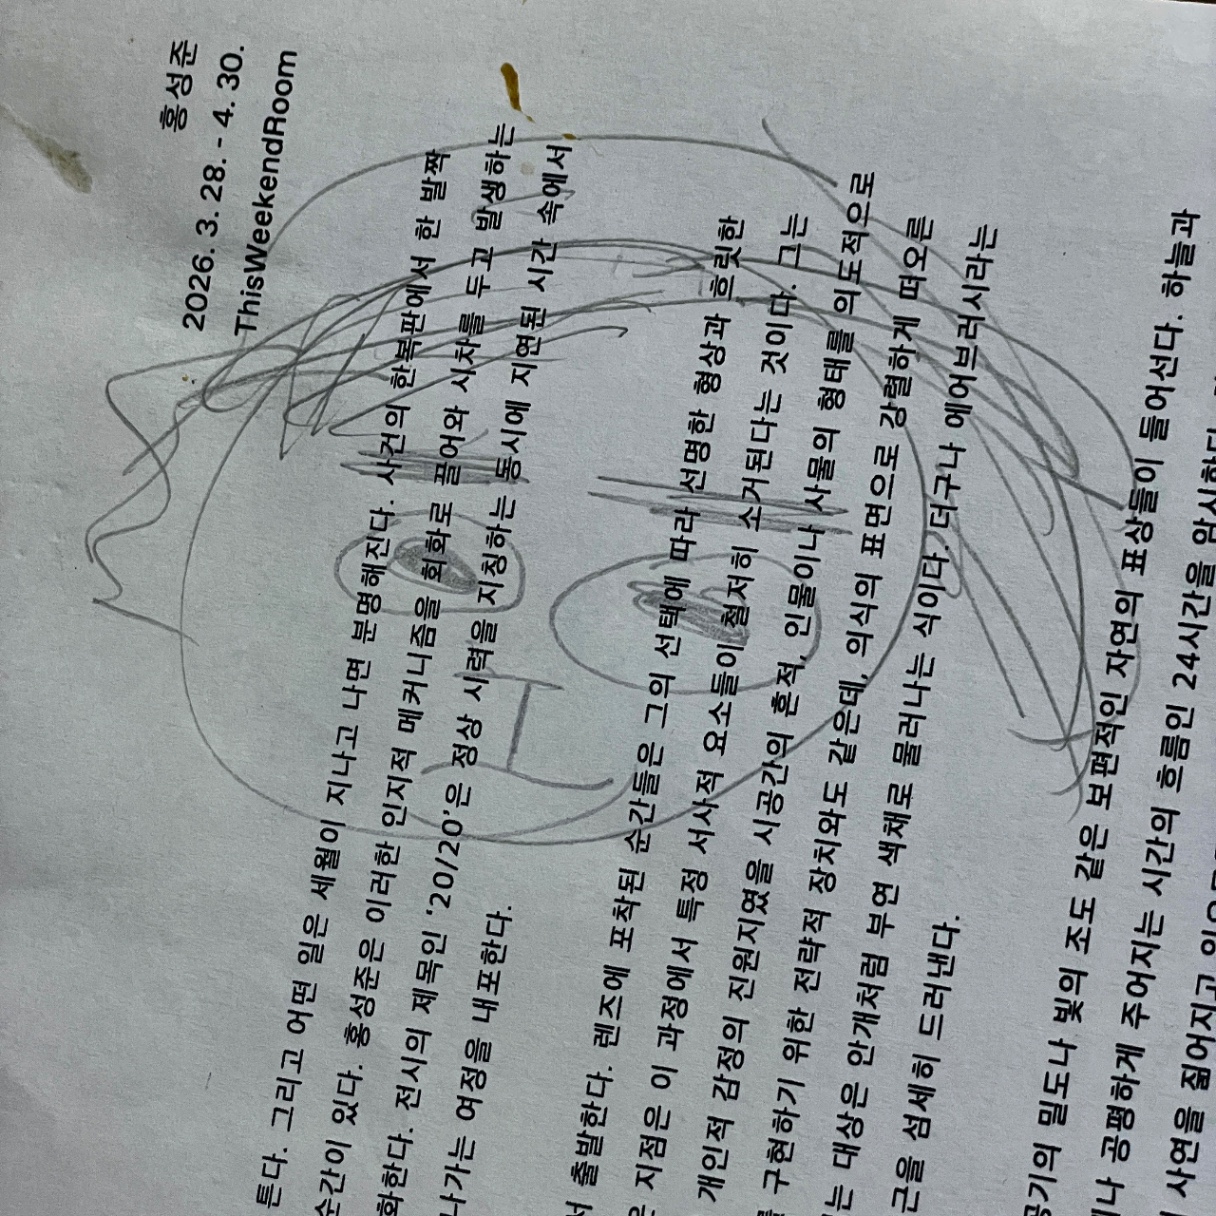 홍성준
2026. 3. 28. - 4. 30.
ThisWeekendRoom
튼다. 그리고 어떤 일은 세월이 지나고 나면 분명해진다. 사건의 한복판에서 한 발짝
순간이 있다. 홍성준은 이러한 인지적 메커니즘을 회화로 끌어와 시차를 두고 발생하는
화한다. 전시의 제목인 '20/20'은 정상 시력을 지칭하는 동시에 지연된 시간 속에서
나가는 여정을 내포한다.
서 출발한다. 렌즈에 포착된 순간들은 그의 선택에 따라 선명한 형상과 흐릿한
지점은 이 과정에서 특정 서사적 요소들이 철저히 소거된다는 것이다. 그는
개인적 감정의 진원지였을 시공간의 흔적, 인물이나 사물의 형태를 의도적으로
구현하기 위한 전략적 장치와도 같은데, 의식의 표면으로 강렬하게 떠오른
는 대상은 안개처럼 부연 색채로 물러나는 식이다. 더구나 에어브러시라는
근을 섬세히 드러낸다.
공기의 밀도나 빛의 조도 같은 보편적인 자연의 표상들이 들어선다. 하늘과
나 공평하게 주어지는 시간의 흐름인 24시간을 암시한다.
사연을 짊어지고